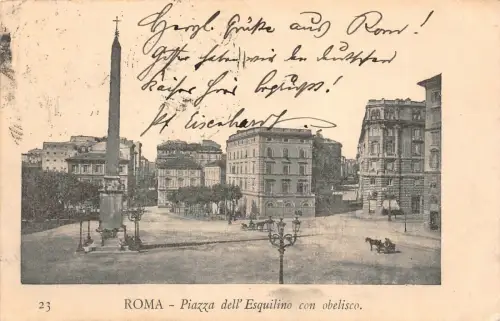 Herzl. Grüße aus Rom!
haben wir den deutschen
Kaiser hier begrüßt!
Eisenhardt
23 ROMA - Piazza dell' Esquilino con obelisco.